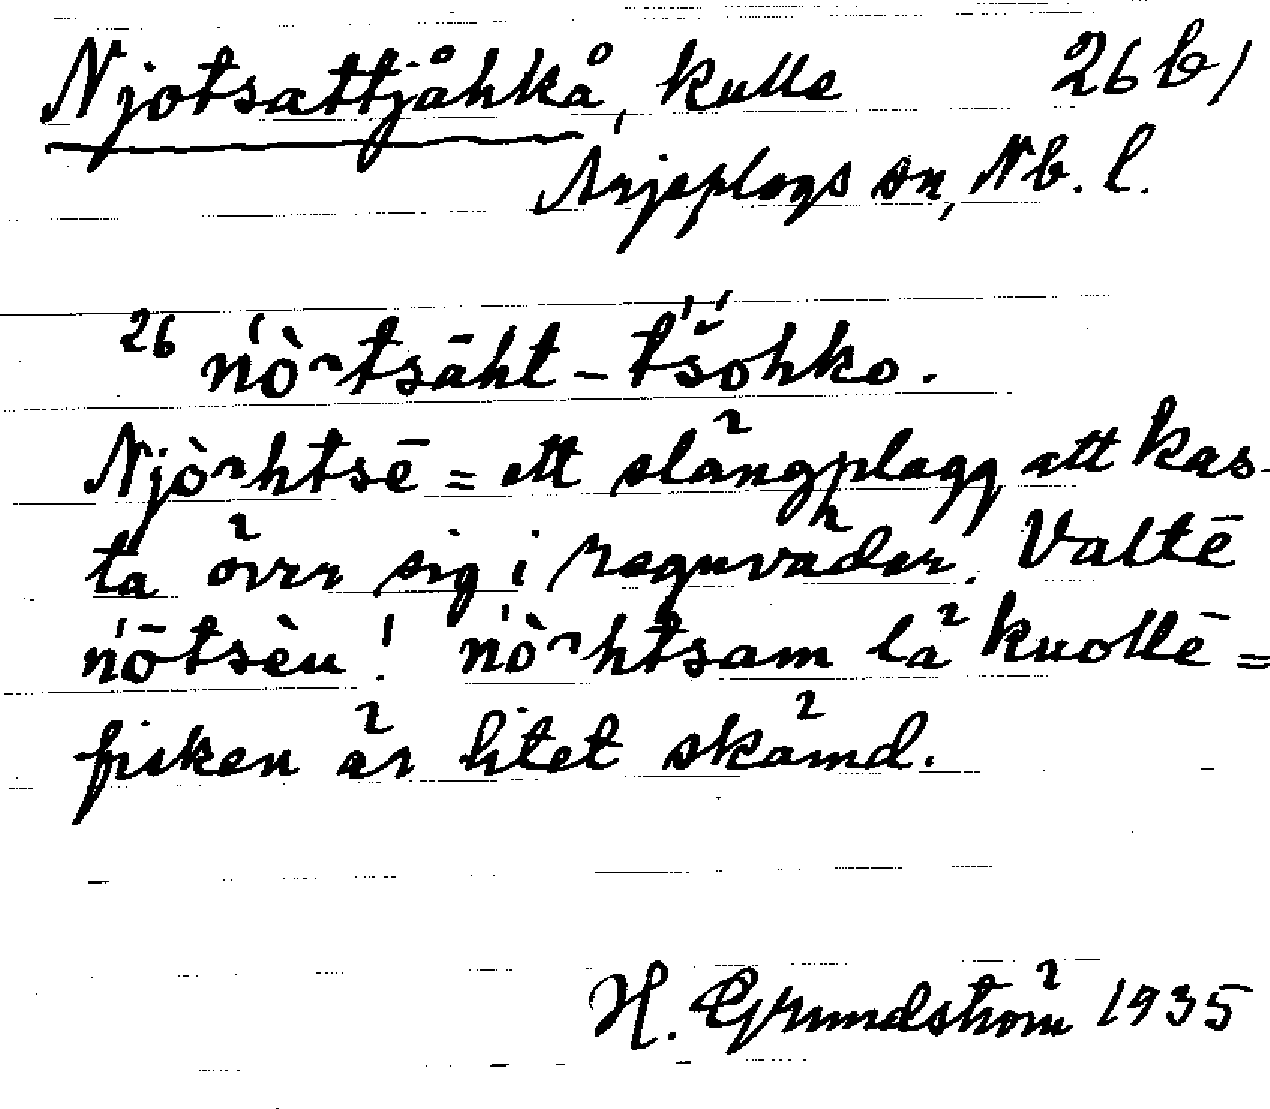 Njotsattjåhkå, kulle 26 b/
Arjeplogs sn, Nb. l.
26 ń̀ò̀ʌtsāht-t́š́ohko.
Njòʌhtsē = ett slängplagg att kas-
ta över sig i regnväder. Valtē
ńōtsèu! ńòʌhtsam lä kuollē =
fisken är litet skämd.
H. Grundström 1935